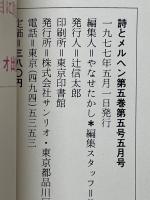 詩とメルヘン第五巻第五号五月号
一九七七年五月一日発行
編集人＝やなせたかし＊編集スタッフ＝
発行人＝辻信太郎
印刷所＝東京印書館
発行所＝株式会社サンリオ・東京都品川
電話＝東京(四九四)五三五三
定価＝三八〇円